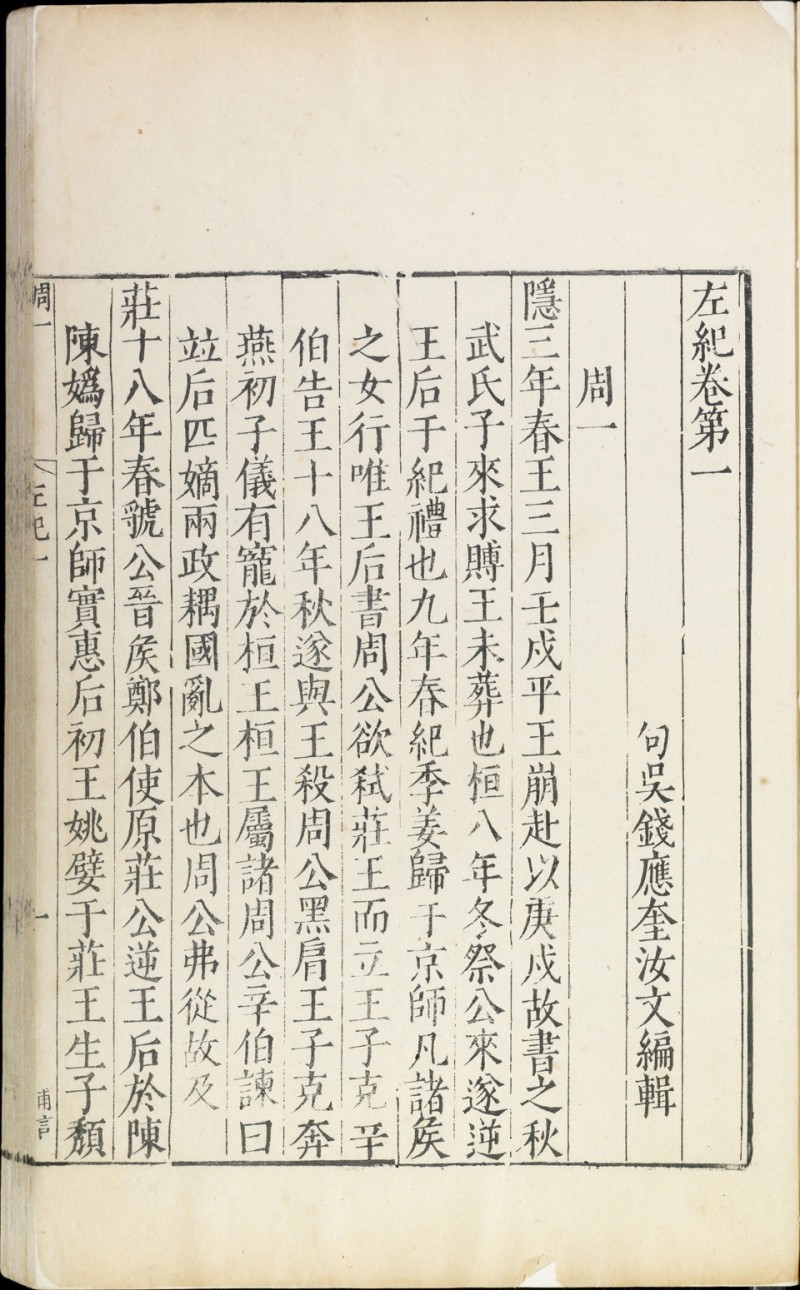 左紀卷第一
句吳錢應奎汝文編輯
周一
隱三年春王三月壬戌平王崩赴以庚戌故書之秋
武氏子來求賻王未葬也桓八年冬祭公來遂逆
王后于紀禮也九年春紀季姜歸于京師凡諸矦
之女行唯王后書周公欲弑莊王而立王子克辛
伯告王十八年秋遂與王殺周公黑肩王子克奔
燕初子儀有寵於桓王桓王屬諸周公辛伯諫曰
竝后匹嫡兩政耦國亂之本也周公弗從故及
莊十八年春虢公晉矦鄭伯使原莊公逆王后於陳
陳嬀歸于京師實惠后初王姚嬖于莊王生子頽
周一
左紀一
一
甫言